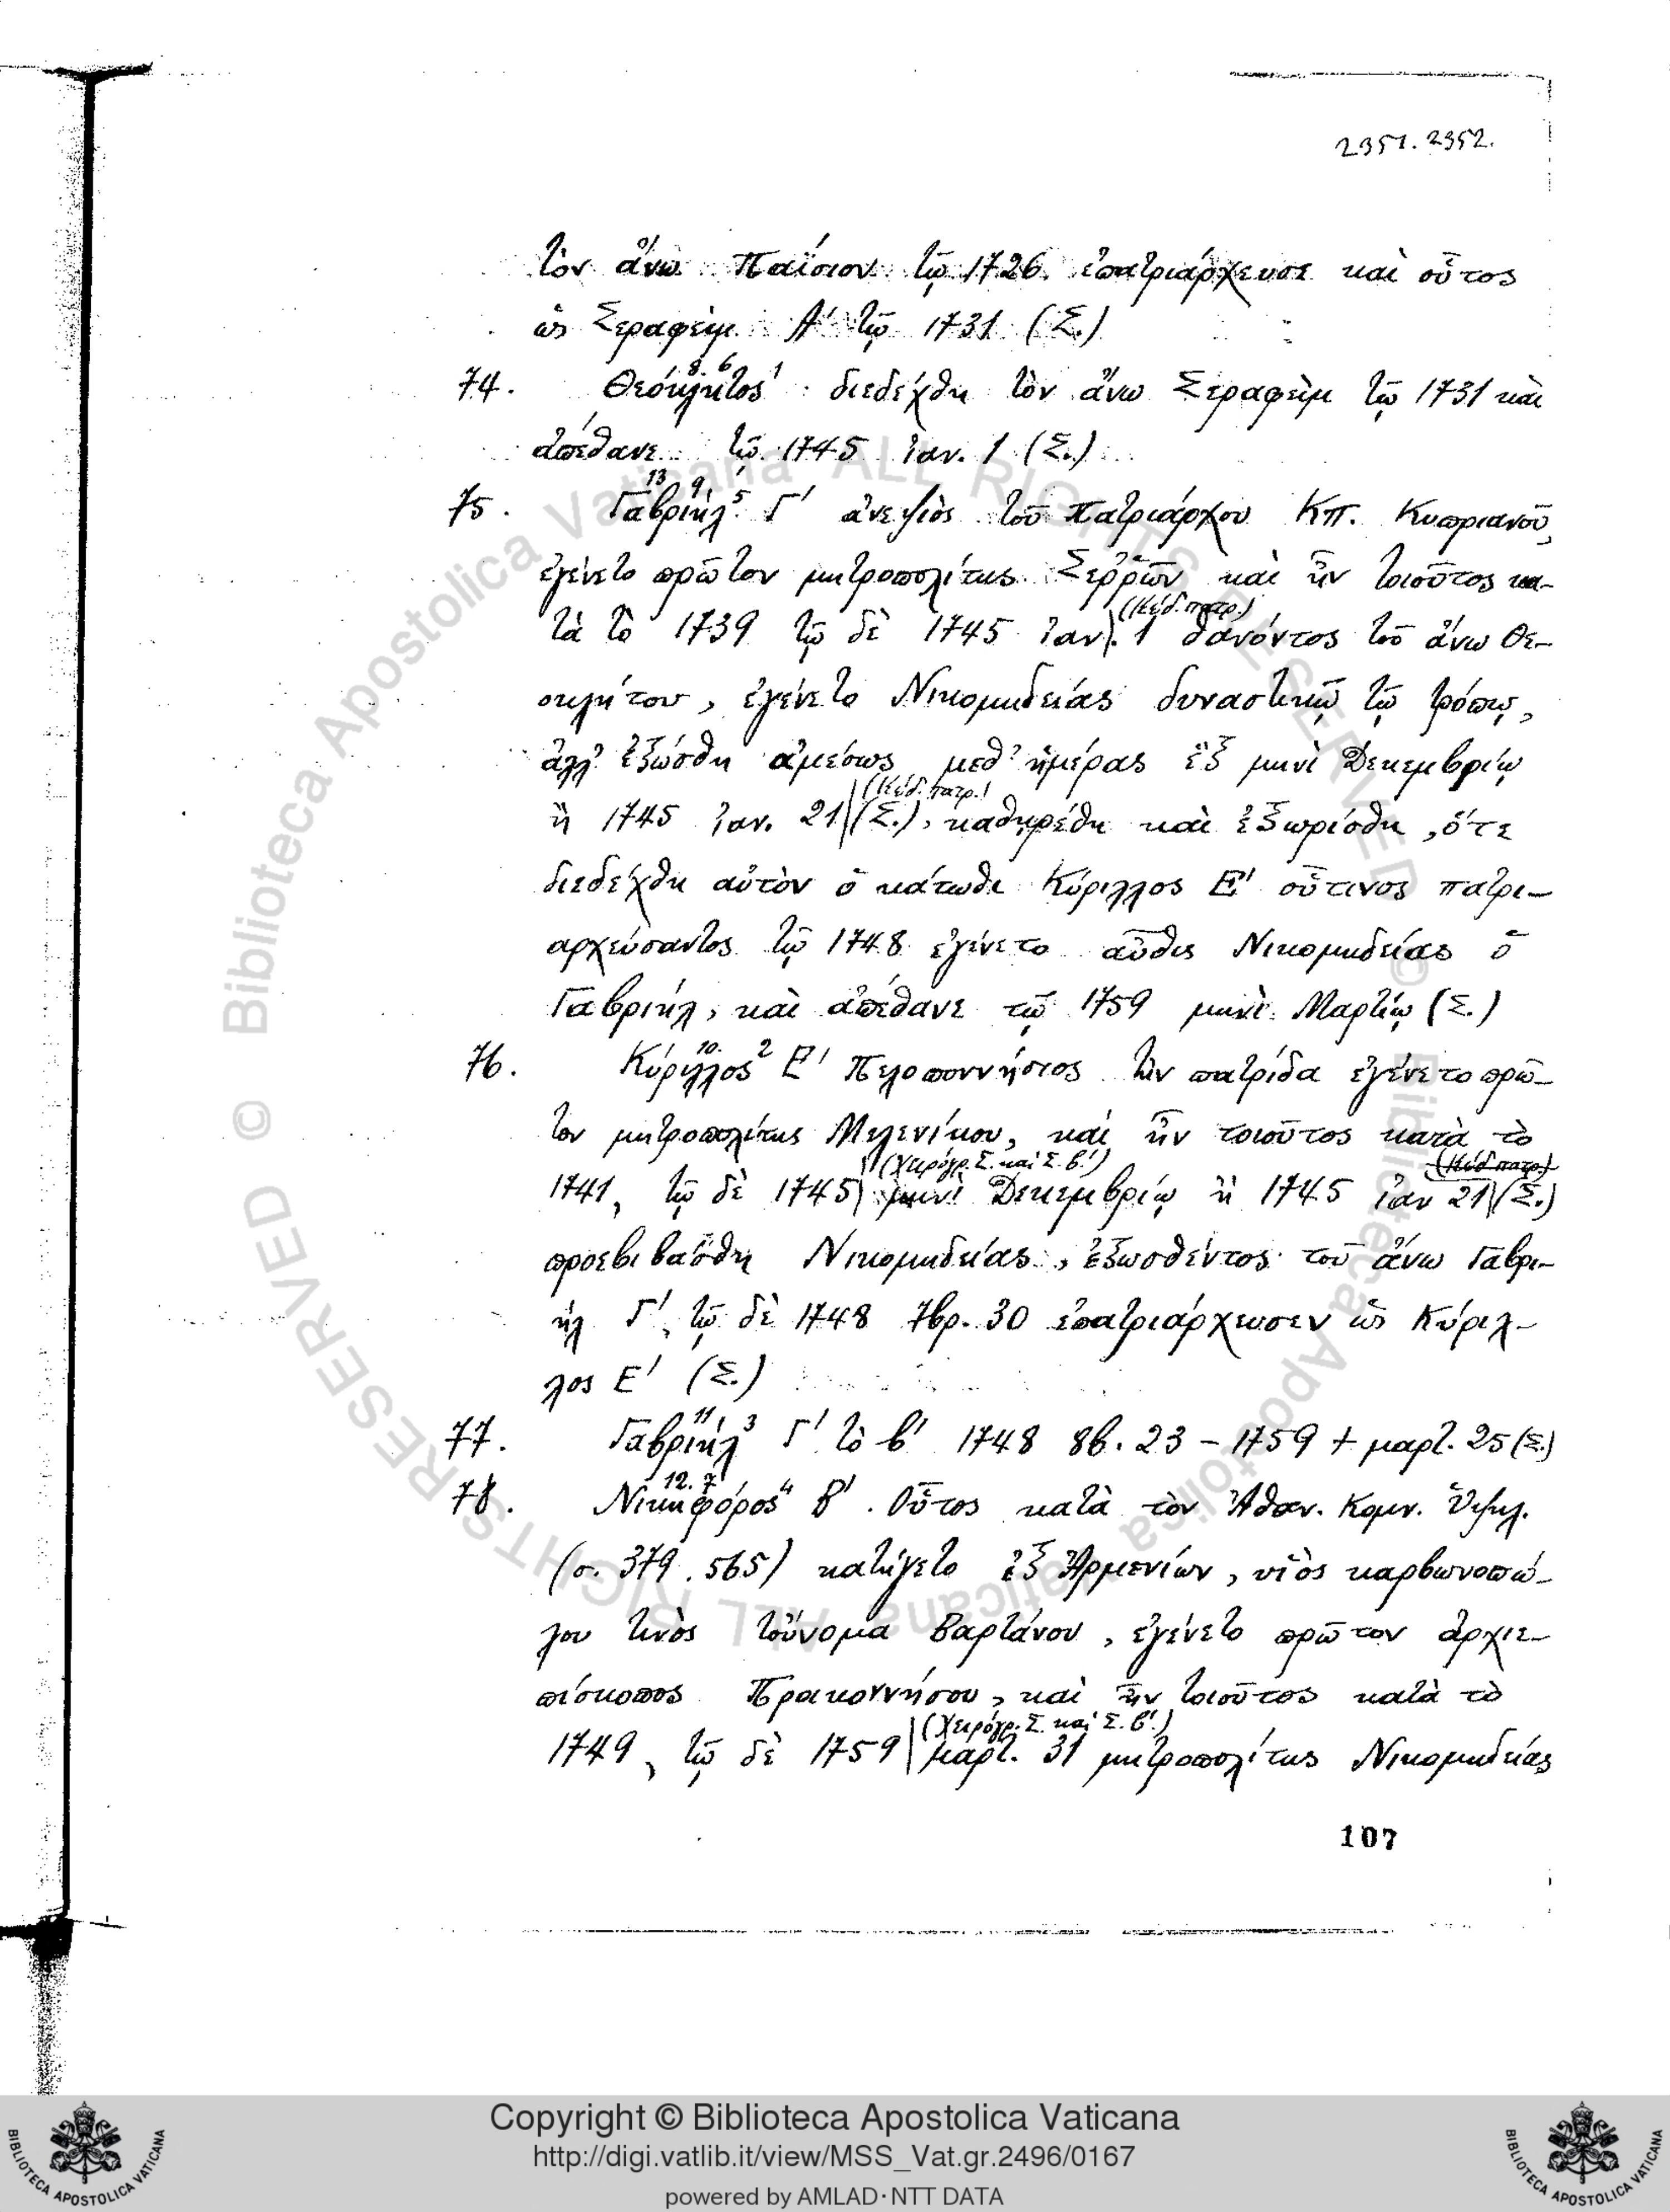 2351. 2352.
τὸν ἄνω Παΐσιον τῷ 1726. ἐπατριάρχευσε καὶ οὗτος
ὡς Σεραφεὶμ Α' τῷ 1731 (Σ.)
8. 6 1
74. Θεόκλητος διεδέχθη τὸν ἄνω Σεραφεὶμ τῷ 1731 καὶ
ἀπέθανε τῷ 1745 Ἰαν. 1 (Σ.)
13 9. 5
75. Γαβριὴλ Γ' ἀνεψιὸς τοῦ Πατριάρχου ΚΠ. Κυπριανοῦ,
ἐγένετο πρῶτον μητροπολίτης Σερρῶν καὶ ἦν τοιοῦτος κα-
(Κώδ. πατρ.)
τὰ τὸ 1739 τῷ δὲ 1745 Ἰαν. 1 θανόντος τοῦ ἄνω Θε-
οκλήτου, ἐγένετο Νικομηδείας δυναστικῷ τῷ τρόπῳ,
ἀλλ' ἐξώσθη ἀμέσως μεθ' ἡμέρας ἓξ μηνὶ Δεκεμβρίῳ
(Κώδ. πατρ.)
ἢ 1745 Ἰαν. 21 (Σ.), καθῃρέθη καὶ ἐξωρίσθη, ὅτε
διεδέχθη αὐτὸν ὁ κάτωθι Κύριλλος Ε' οὗτινος πατρι-
αρχεύσαντος τῷ 1748 ἐγένετο αὖθις Νικομηδείας ὁ
Γαβριήλ, καὶ ἀπέθανε τῷ 1759 μηνὶ Μαρτίῳ (Σ.)
10. 2
76. Κύριλλος Ε' Πελοποννήσιος τὴν πατρίδα ἐγένετο πρῶ-
τον μητροπολίτης Μελενίκου, καὶ ἦν τοιοῦτος κατὰ τὸ
(Χειρόγρ. Σ. καὶ Σ. β'.) (Κώδ. πατρ.)
1741, τῷ δὲ 1745 μηνὶ Δεκεμβρίῳ ἢ 1745 Ἰαν 21 (Σ.)
προεβιβάσθη Νικομηδείας, ἐξωσθέντος τοῦ ἄνω Γαβρι-
ὴλ Γ', τῷ δὲ 1748 7βρ. 30 ἐπατριάρχευσεν ὡς Κύριλ-
λος Ε' (Σ.)
11 3
77. Γαβριὴλ Γ' τὸ β' 1748 8β. 23 – 1759 + μαρτ. 25 (Σ.)
12. 7 4
78. Νικηφόρος Β'. Οὗτος κατὰ τὸν Ἀθαν. Κομν. Ὑψηλ.
(σ. 379. 565) κατήγετο ἐξ Ἀρμενίων, υἱὸς καρβωνοπώ-
λου τινὸς τοὔνομα Βαρτάνου, ἐγένετο πρῶτον ἀρχιε-
πίσκοπος Προικοννήσου, καὶ ἦν τοιοῦτος κατὰ τὸ
(Χειρόγρ. Σ. καὶ Σ. β'.)
1749, τῷ δὲ 1759 μαρτ. 31 μητροπολίτης Νικομηδείας
107
© Biblioteca Apostolica Vaticana ALL RIGHTS RESERVED © Biblioteca Apostolica Vaticana ALL RIGHTS RESERVED
Copyright © Biblioteca Apostolica Vaticana
http://digi.vatlib.it/view/MSS_Vat.gr.2496/0167
powered by AMLAD·NTT DATA
BIBLIOTECA APOSTOLICA VATICANA
BIBLIOTECA APOSTOLICA VATICANA